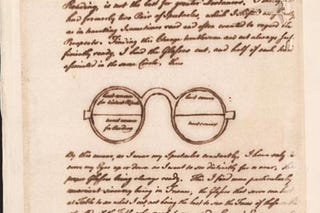 Reading, is not the best for greater Distances.
had formerly two Pair of Spectacles, which I shifted
as in travelling I sometimes read and often wanted to regard the
Prospects. Finding this Change troublesome and not always suf-
ficiently ready, I had the Glasses cut, and half of each kind
associated in the same Circle, thus
least convex
for distant Objects
most convex
for Reading
least convex
most convex
By this means, as I wear my Spectacles constantly, I have only to
move my Eyes up or down as I want to see distinctly far or near, the
proper Glasses being always ready. This I find more particularly
convenient since my being in France, the Glasses that serve me best
at Table to see what I eat not being the best to see the Faces of those